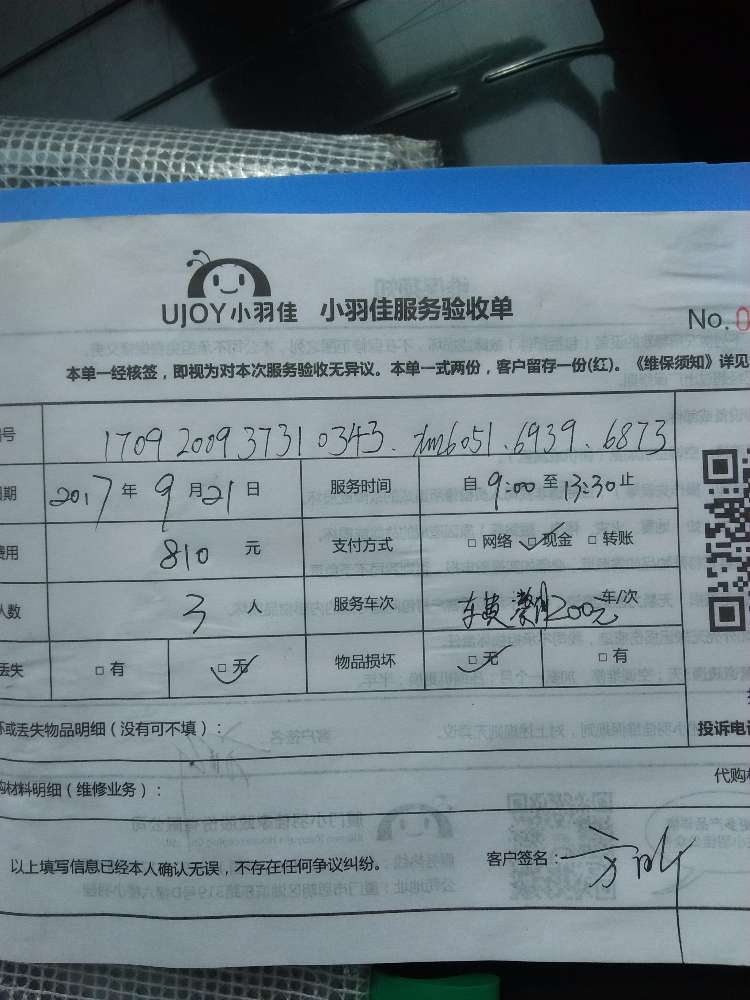 UJOY小羽佳 小羽佳服务验收单
No.0
本单一经核签，即视为对本次服务验收无异议。本单一式两份，客户留存一份(红)。《维保须知》详见
号 1709200937310343. tm6051.6939.6873
期 2017年9月21日 服务时间 自9:00至13:30止
费用 810元 支付方式 □网络 □现金 □转账
人数 3人 服务车次 车费 200元 车/次
丢失 □有 □无 物品损坏 □无 □有
坏或丢失物品明细（没有可不填）： 投诉电话
购材料明细（维修业务）： 代购
以上填写信息已经本人确认无误，不存在任何争议纠纷。 客户签名：